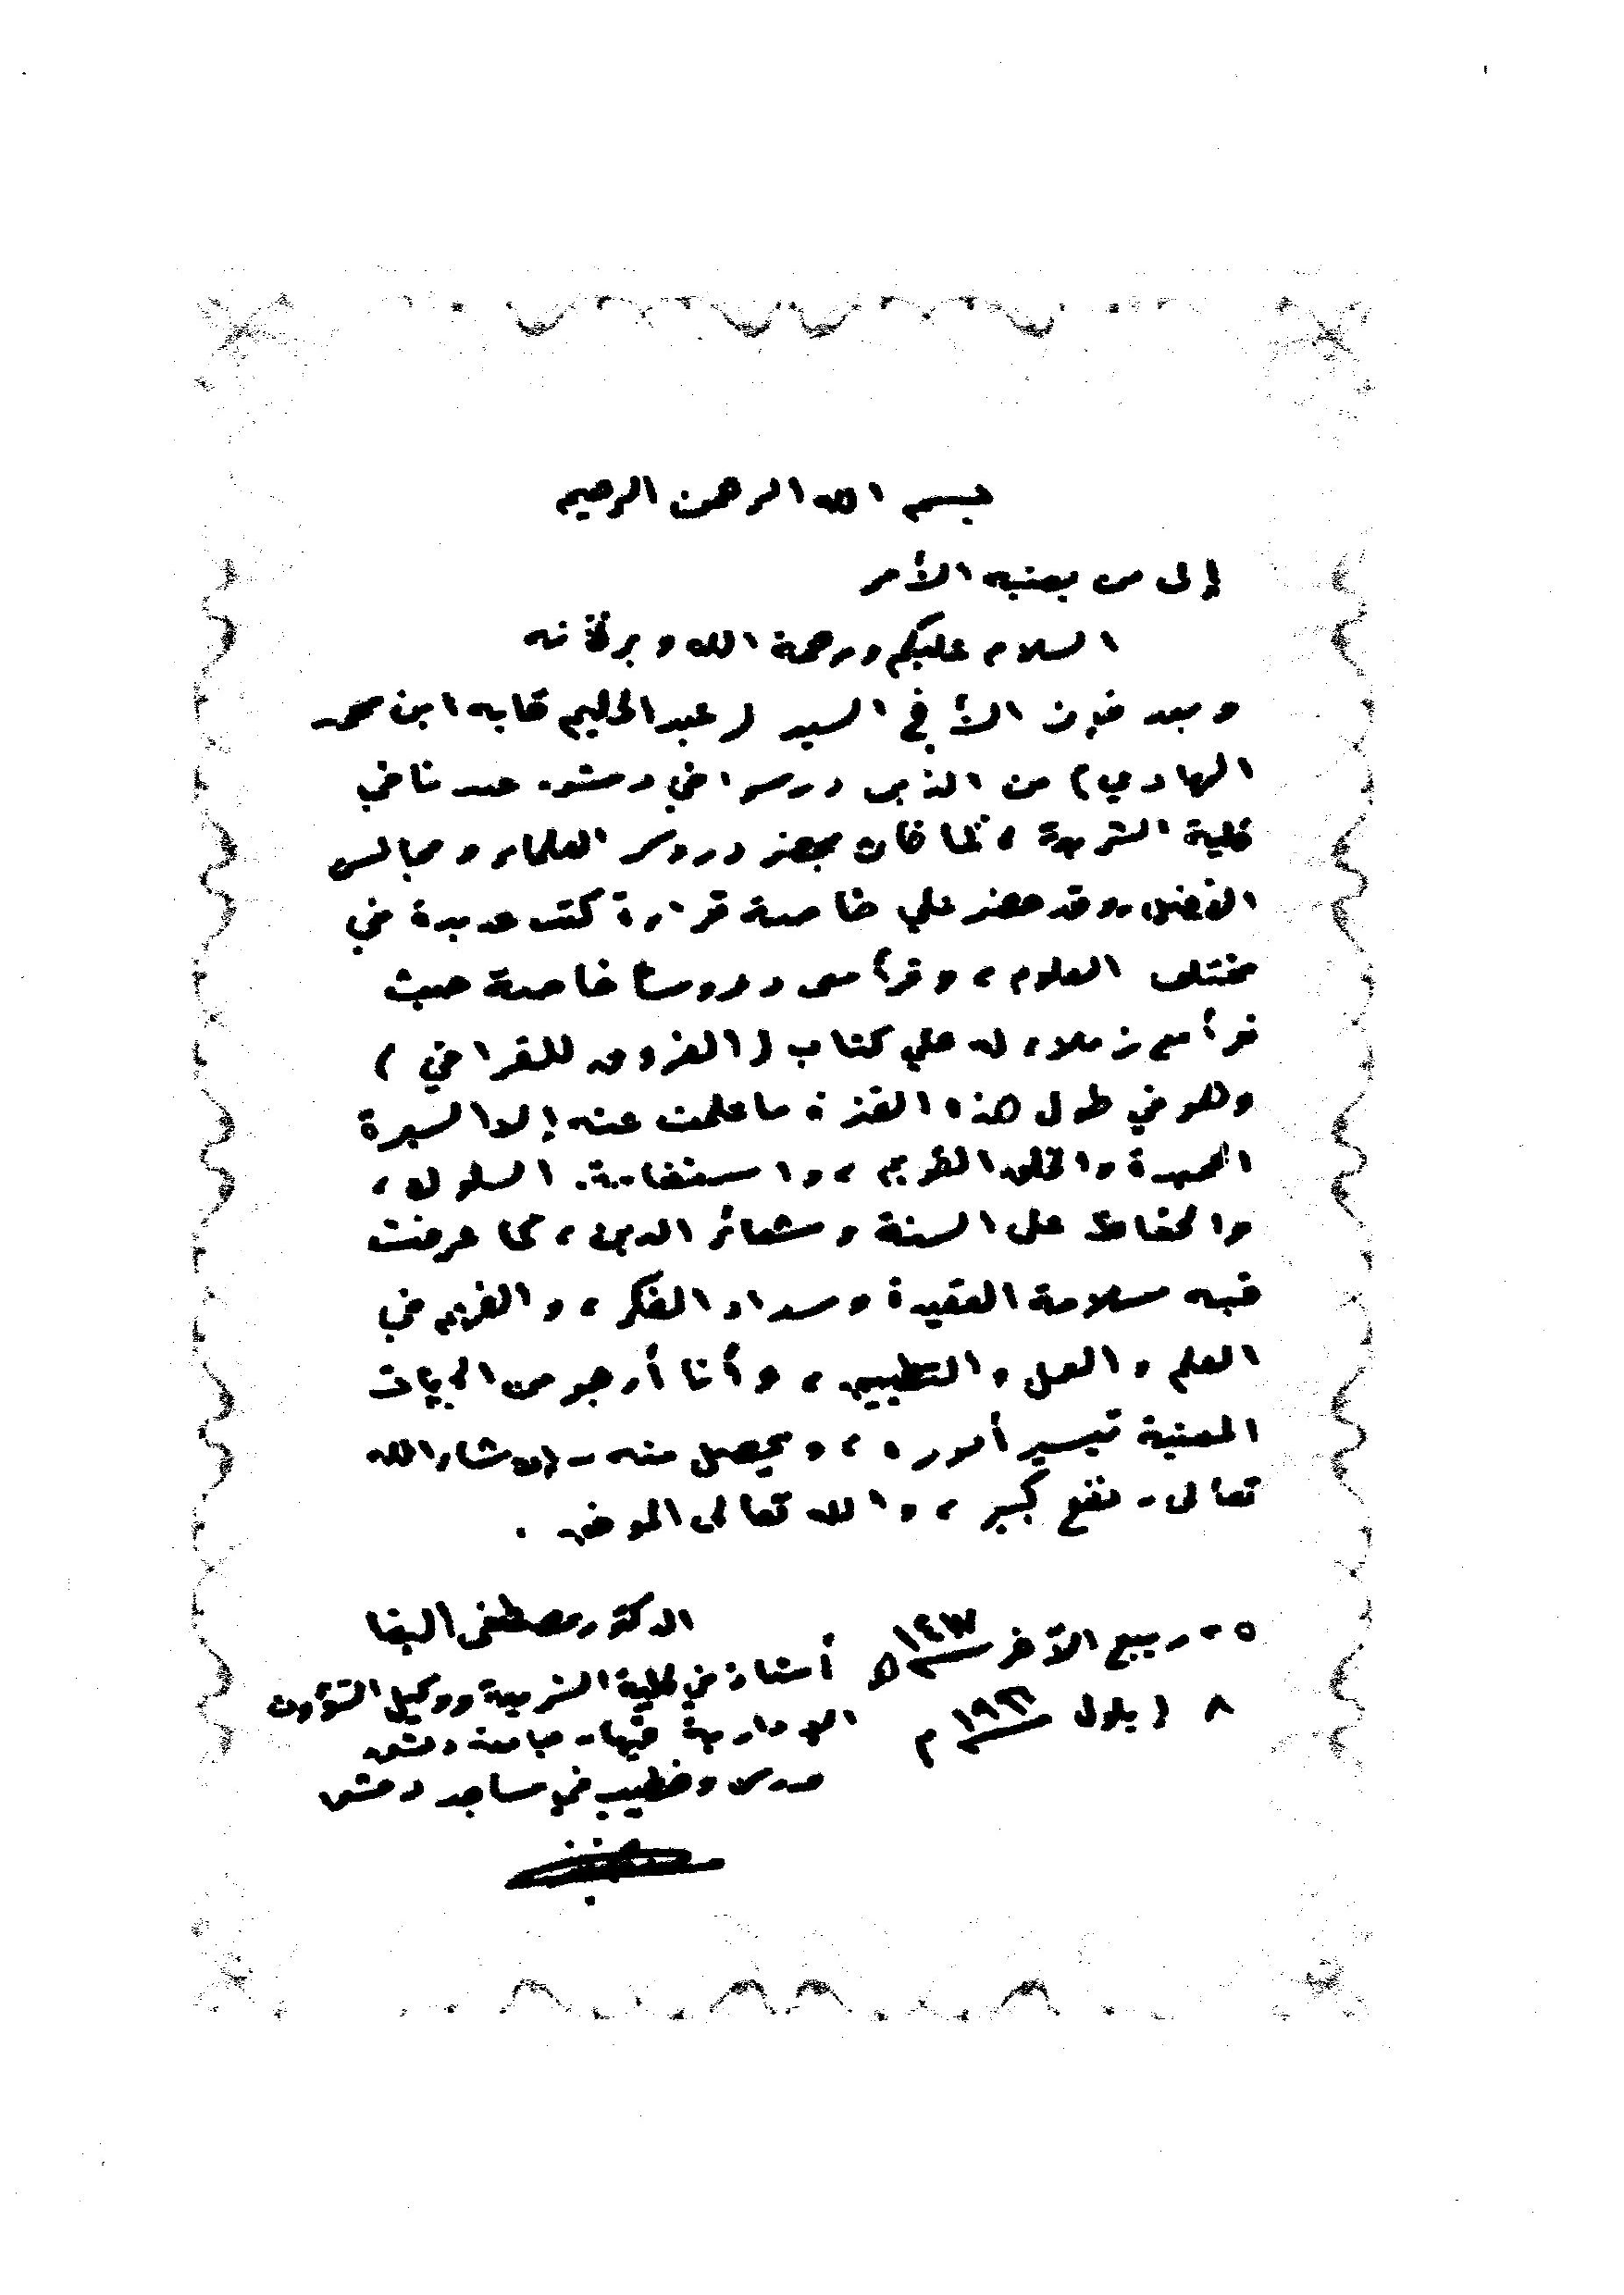 بسم الله الرحمن الرحيم
إلى من يعنيه الأمر
السلام عليكم ورحمة الله وبركاته
وبعد فإن الأخ السيد (عبد الحليم قابه ابن محمد
الهادي) من الذين درسوا في دمشق عندنا في
كلية الشريعة، كما كان يحضر دروس العلماء ومجالس
الفضل، وقد حضر علي خاصة قراءة كتب عديدة في
مختلف العلوم، وقرأ دروسا خاصة حيث
قرأ مع زملاء له علي كتاب (الفروق للقرافي)
وهو في طول هذه الفترة ما علمت عنه إلا السيرة
الحميدة والخلق القويم، واستقامة السلوك،
والحفاظ على السنة وشعائر الدين، كما عرفت
فيه سلامة العقيدة وسداد الفكر، في
العلم والعمل والتطبيق، وأنا أرجو من الجهات
المعنية تيسير أموره، ويحصل منه - إن شاء الله
تعالى - نفع كبير، والله تعالى الموفق.
الدكتور مصطفى البغا
أستاذ في كلية الشريعة ووكيل الشؤون
الإدارية فيها - جامعة دمشق
مدرس وخطيب في مساجد دمشق
٢٥ ربيع الآخر ١٤١٧ هـ
٨ أيلول ١٩٩٦ م